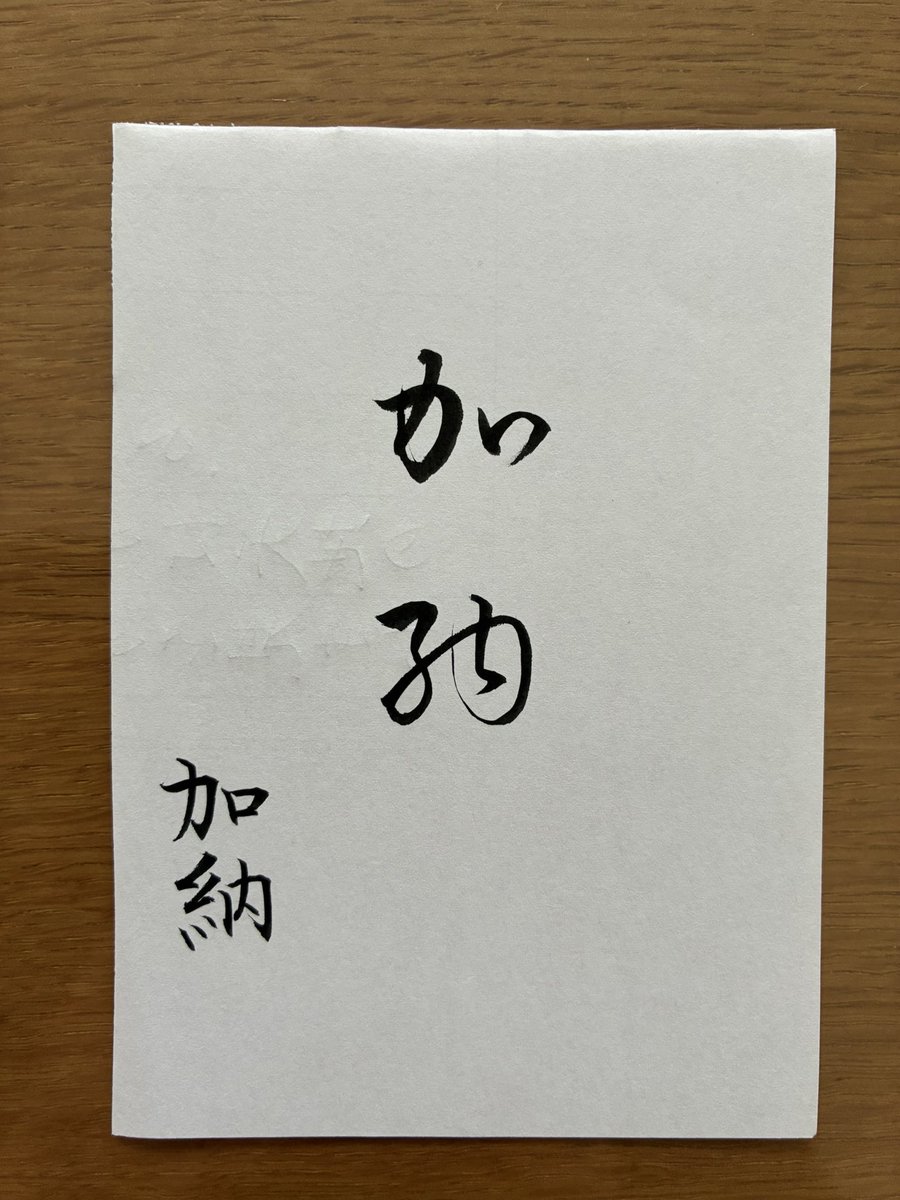 加納
加納